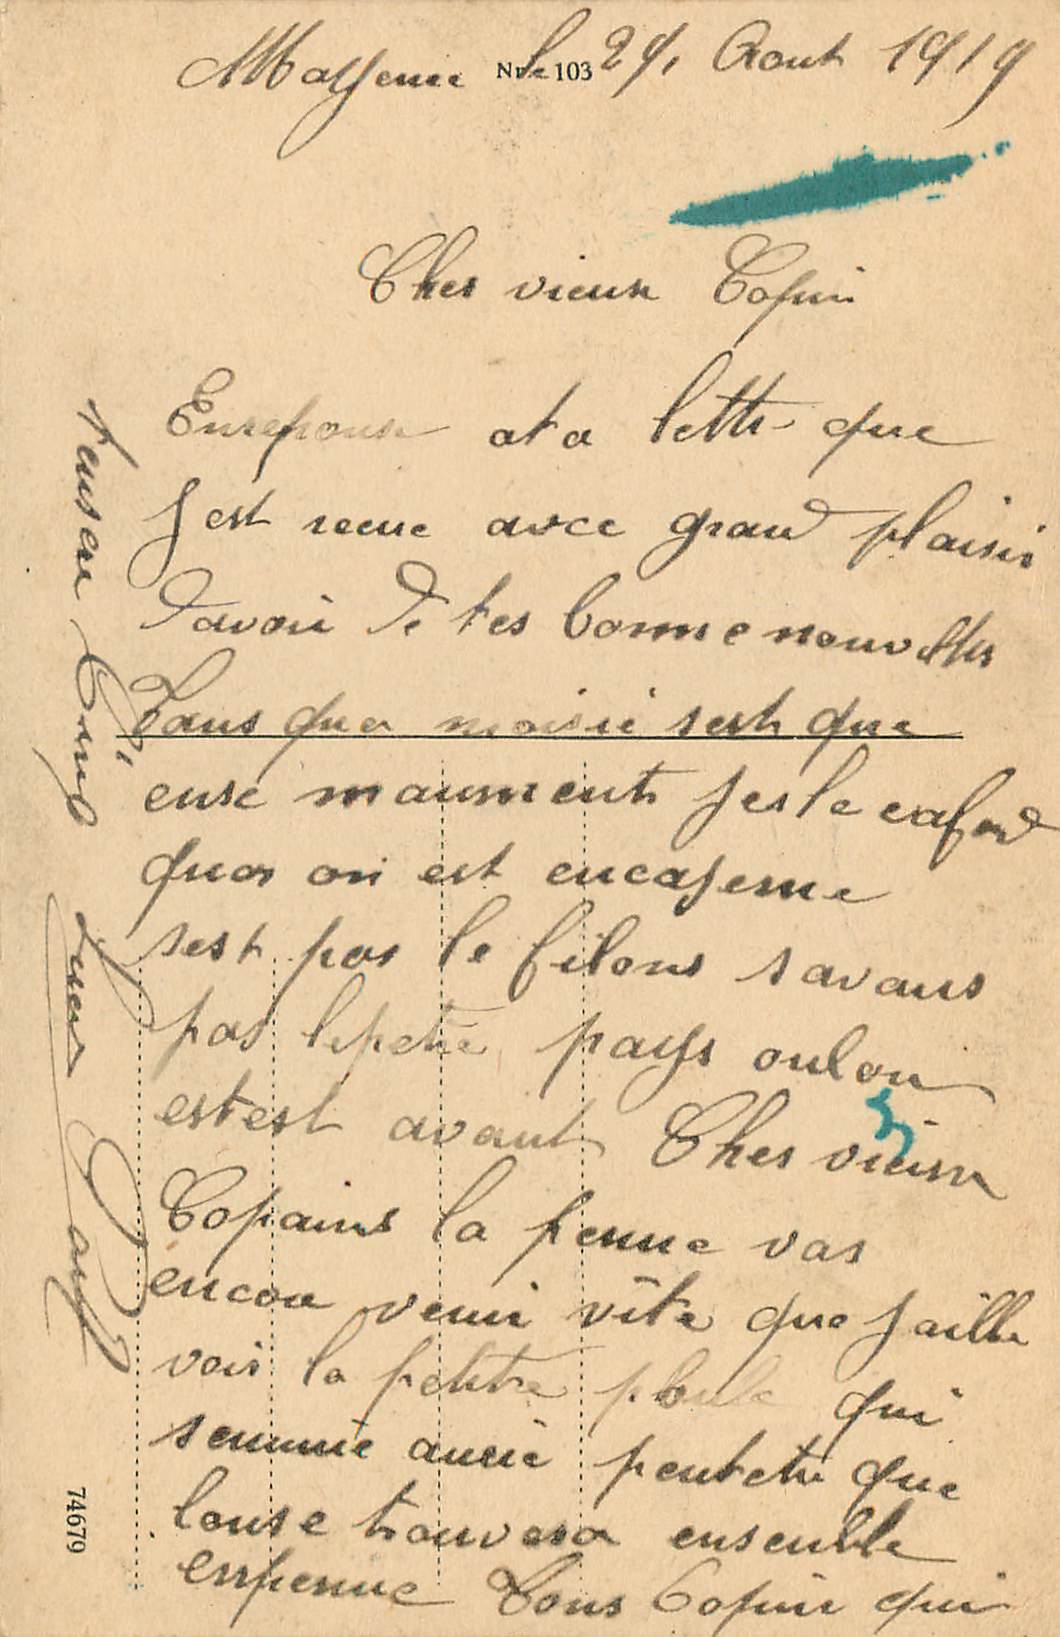 Mayenne le 24, Aout 1919
Nr. 103
Cher vieux Copin
Enreponse ata lettr que
Jest recue avce grand plaisir
Davoir De tes bonne nouvelles
Tans qua moisie sest que
euse maument Jes le cafard
quar on est encaserne
sest pas le filons savaus
pas lepetie pays oulon
estest avant Cher vieux
Copains la perme vas
encore venir vite que Jaille
voir la petitre poule qui
sennuie aussie peutetre que
lonse trouvera ensemble
enperme Tons Copin qui
Pensea Toi
74679